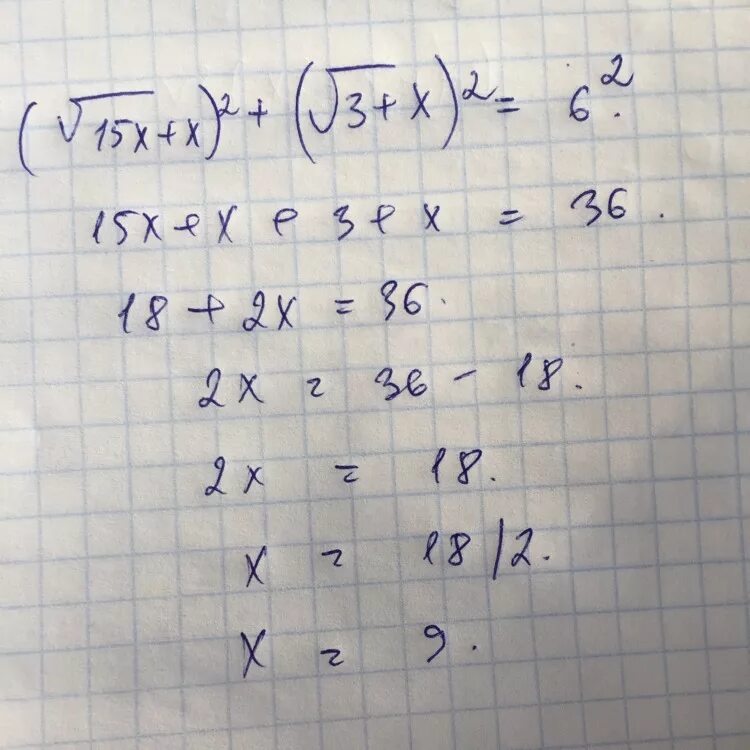 (√15x+x)²+(√3+x)²=6².
15x+x+3+x=36.
18+2x=36.
2x=36-18.
2x=18.
x=18/2.
x=9.